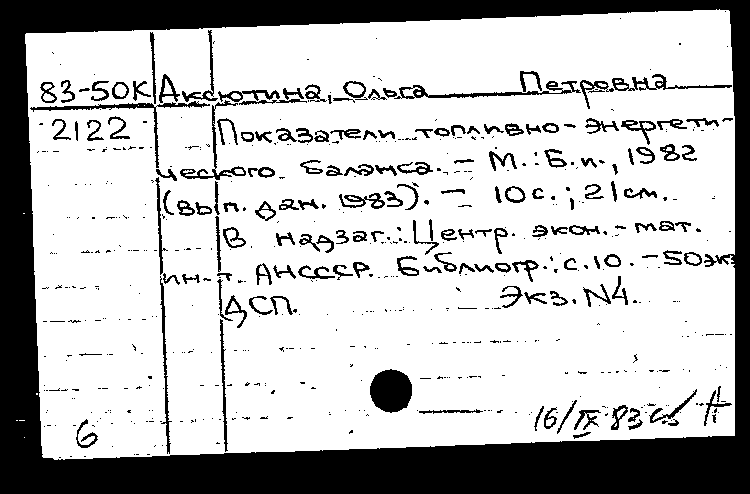 83-50К Аксютина, Ольга Петровна
2122 Показатели топливно-энергети-
ческого баланса. - М.: Б.и., 1982
(вып. дан. 1983). - 10с.; 21см.
В надзаг.: Центр. экон.-мат.
ин-т АНСССР. Библиогр.: с.10. - 50экз
ДСП. Экз. N4.
16/IX 83
6